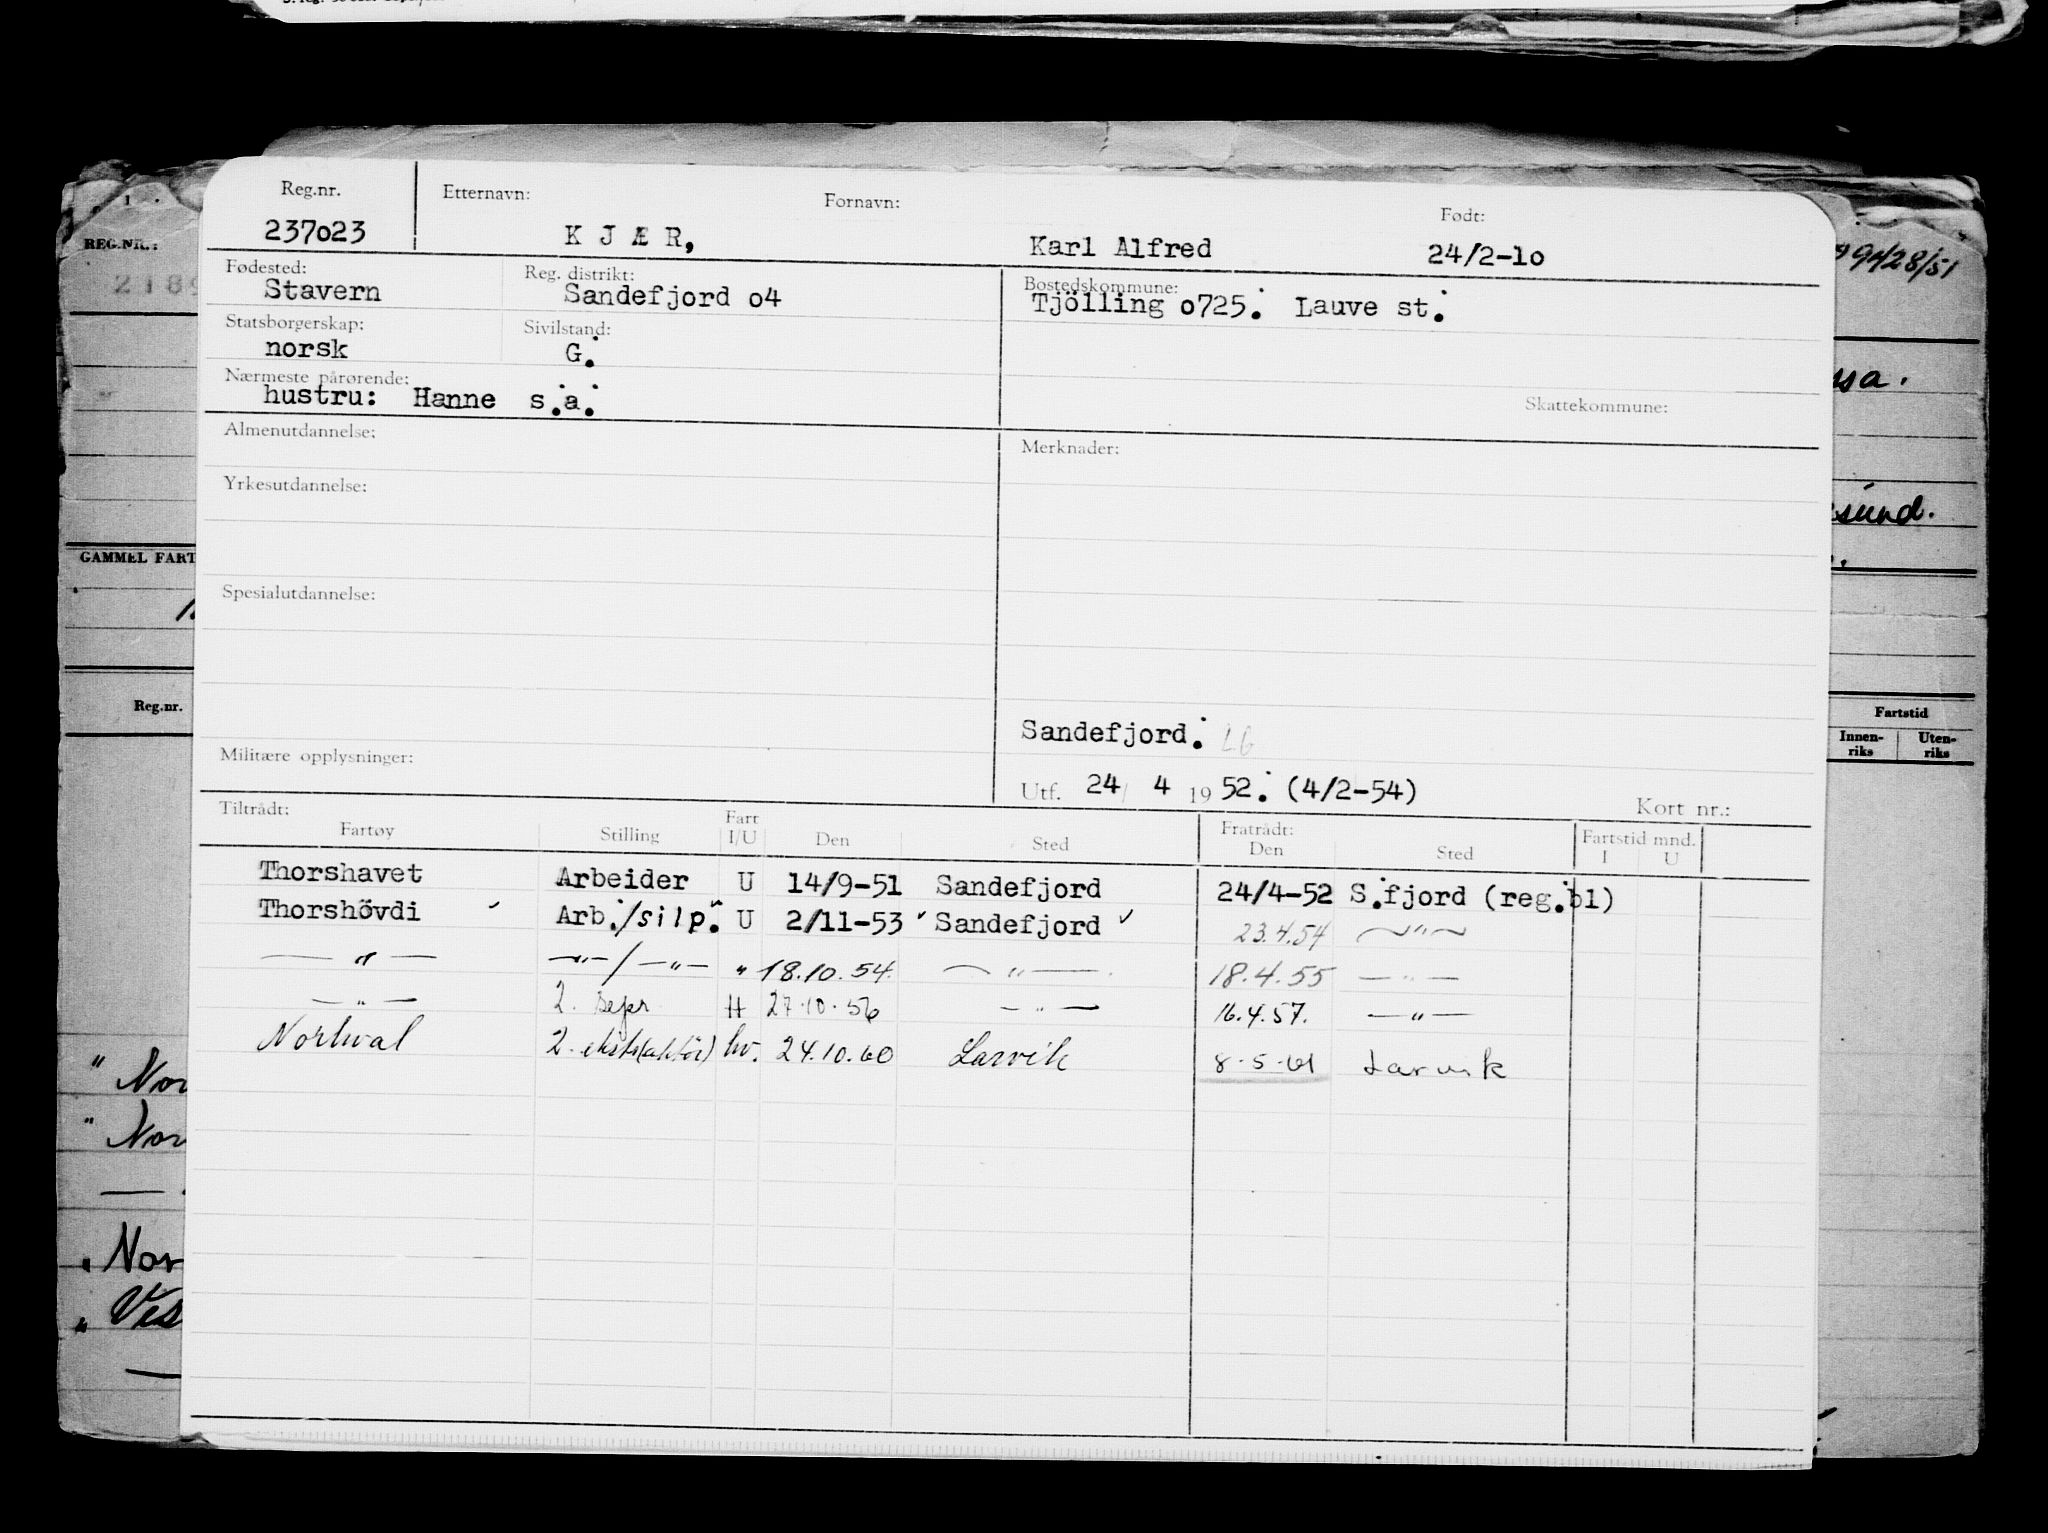 Reg.nr. Etternavn: Fornavn: Født:
237o23 K J Æ R, Karl Alfred 24/2-1o
Fødested: Reg. distrikt: Bostedskommune:
Stavern Sandefjord o4 Tjölling o725. Lauve st.
Statsborgerskap: Sivilstand:
norsk G.
Nærmeste pårørende:
hustru: Hanne s.a. Skattekommune:
Almenutdannelse: Merknader:
Yrkesutdannelse:
Spesialutdannelse:
Sandefjord. LG
Militære opplysninger:
Utf. 24/ 4 1952. (4/2-54) Kort nr.:
Tiltrådt: Fratrådt: Fartstid mnd.
Fartøy Stilling Fart I/U Den Sted Den Sted I U
Thorshavet Arbeider U 14/9-51 Sandefjord 24/4-52 S.fjord (reg.bl)
Thorshövdi ✓ Arb./silp. U 2/11-53 ✓ Sandefjord ✓ 23.4.54 —"—
—"— —"—/—"— " 18.10.54. —"— 18.4.55 —"—
—"— 2. sepr H 27.10.56 —"— 16.4.57. —"—
Norhval 2. hv. 24.10.60 Larvik 8-5-61 Larvik
REG.NR.:
2189
GAMMEL FART
Reg.nr.
" Nor
" Nor
" Nor
" Ves
9428/51
ssa.
sund.
Fartstid
Innen-riks Uten-riks